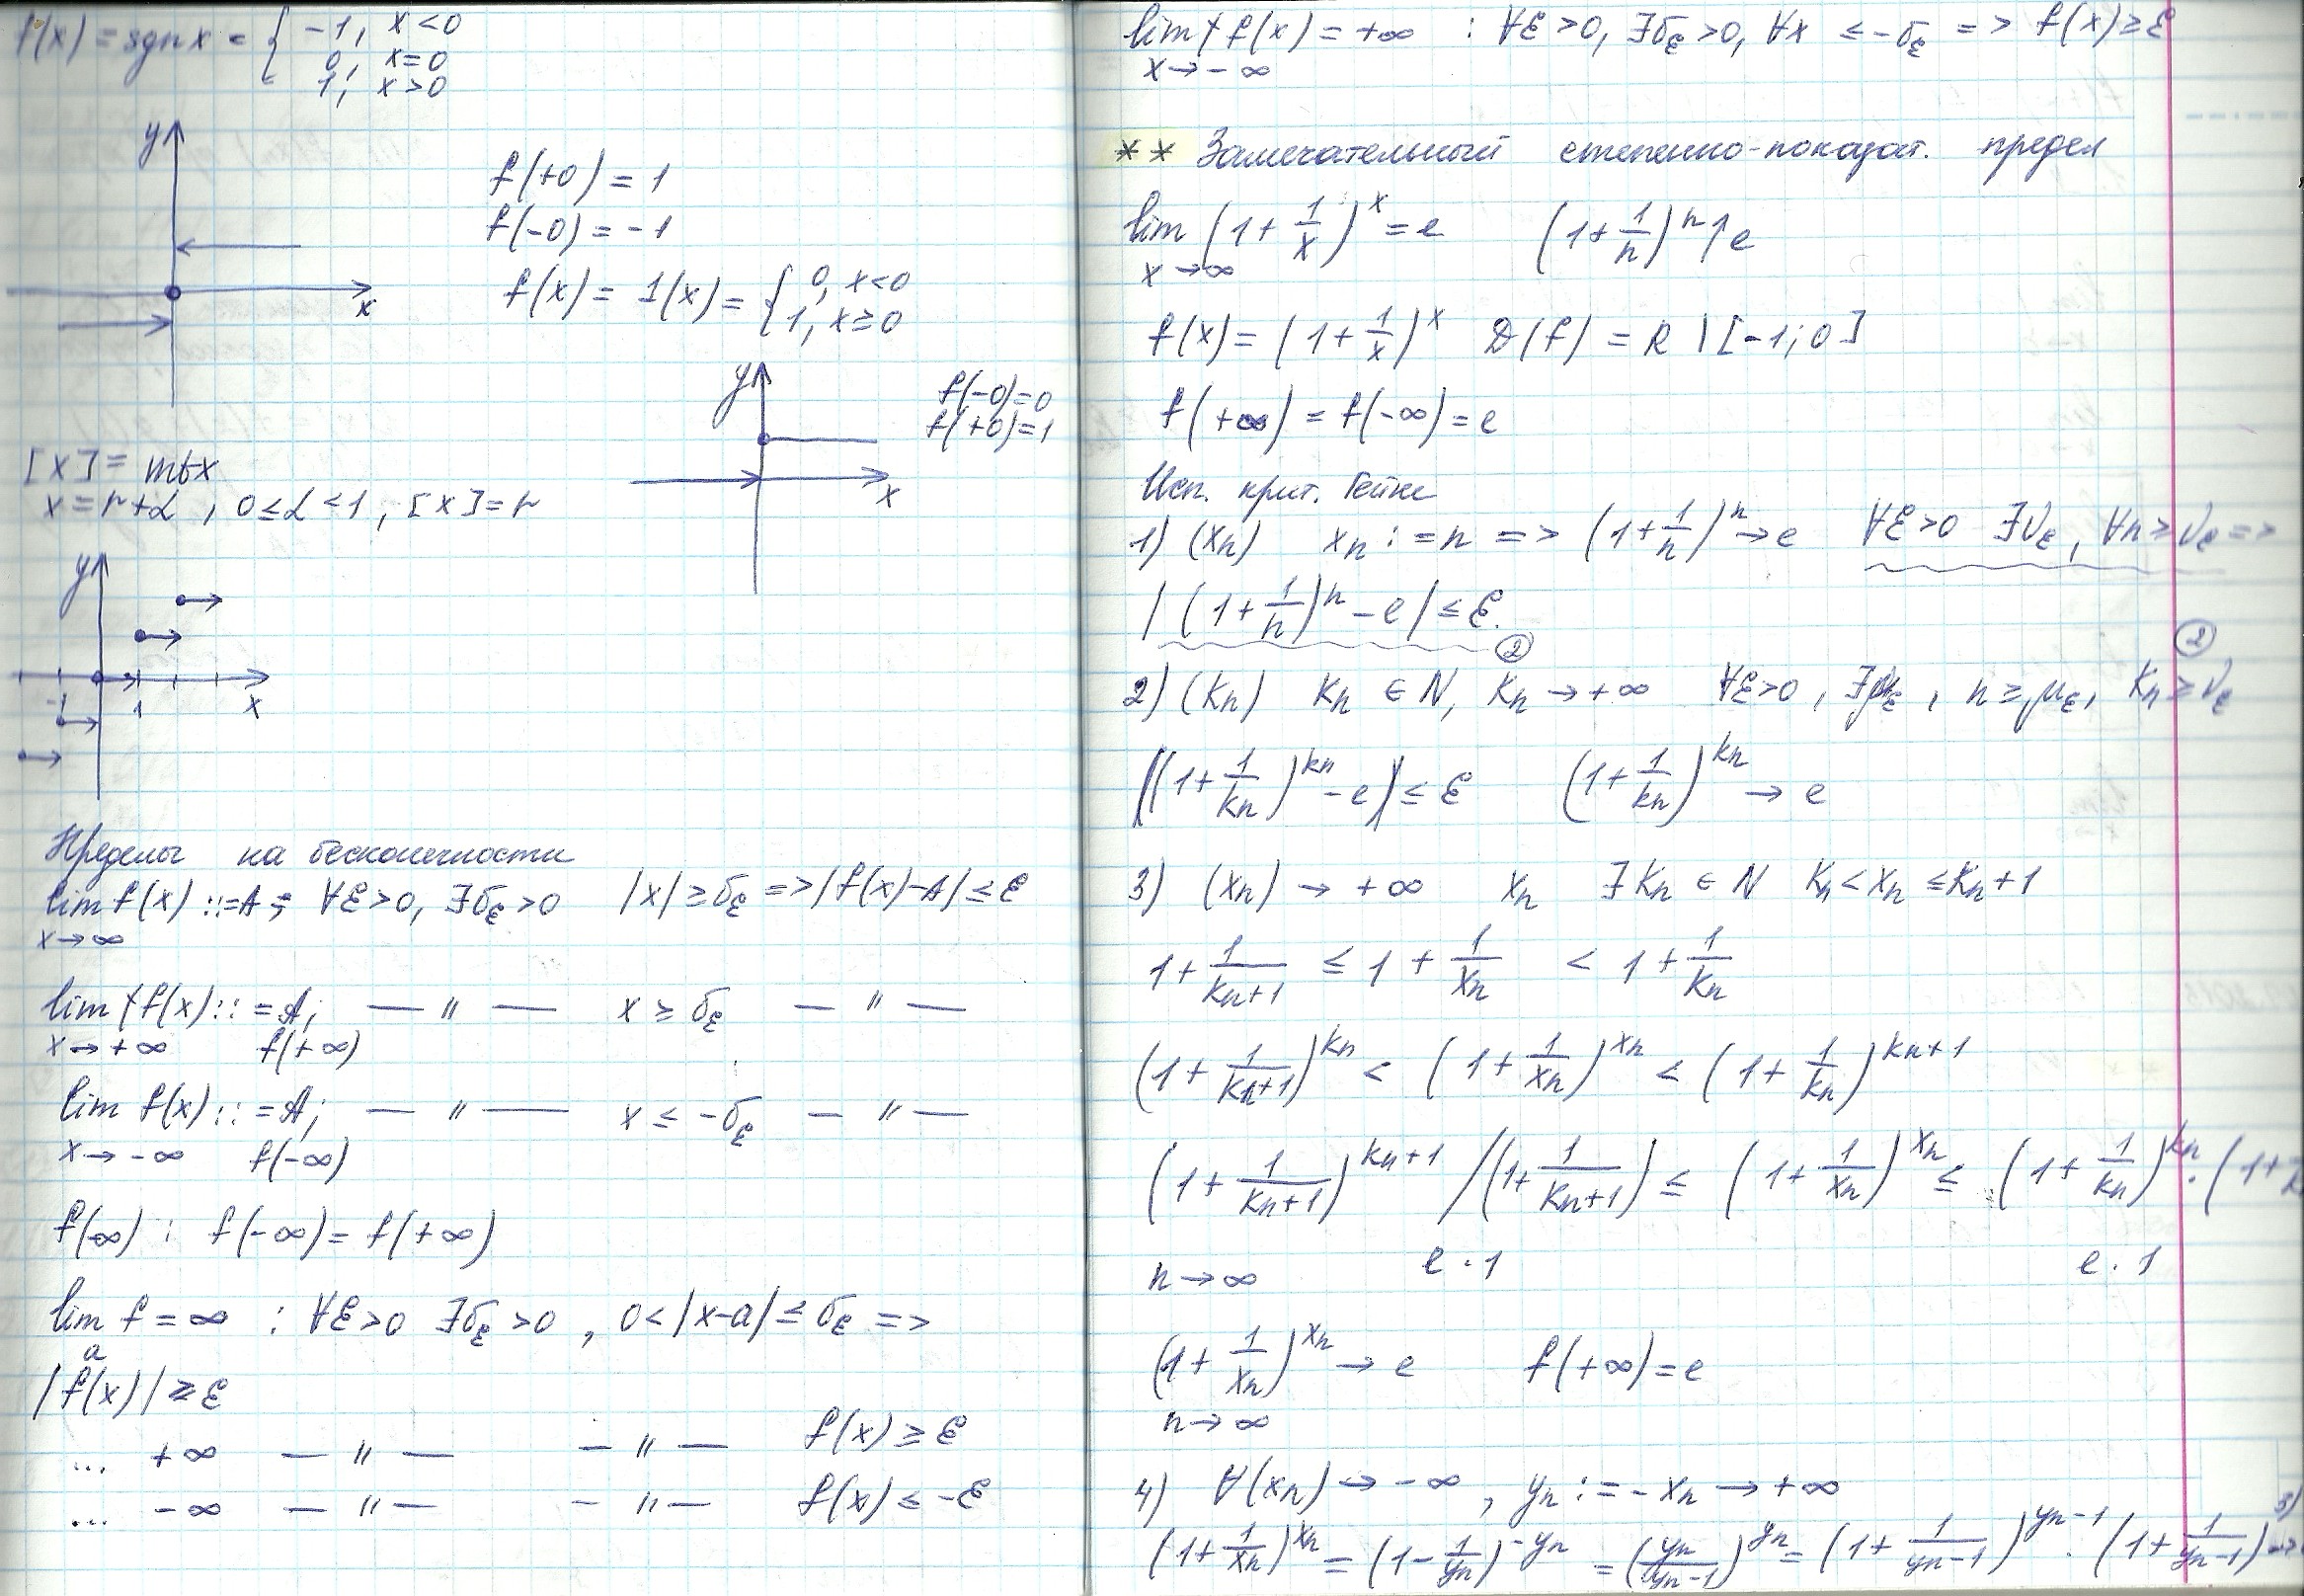 f(x) = sgn x = { -1, x < 0
0, x = 0
1, x > 0
y
x
f(+0) = 1
f(-0) = -1
f(x) = 1(x) = { 0, x < 0
1, x ≥ 0
y
x
f(-0) = 0
f(+0) = 1
[x] =
x = r + α, 0 ≤ α < 1, [x] = r
y
-1 1 x
Пределы на бесконечности
lim f(x) ::= A; ∀ε > 0, ∃δε > 0 |x| ≥ δε => |f(x) - A| ≤ ε
x → ∞
lim f(x) ::= A; — " — x ≥ δε — " —
x → +∞ f(+∞)
lim f(x) ::= A; — " — x ≤ -δε — " —
x → -∞ f(-∞)
f(∞) : f(-∞) = f(+∞)
lim f = ∞ : ∀ε > 0 ∃δε > 0, 0 < |x-a| ≤ δε =>
a
|f(x)| ≥ ε
... +∞ — " — — " — f(x) ≥ ε
... -∞ — " — — " — f(x) ≤ -ε
lim f(x) = +∞ : ∀ε > 0, ∃δε > 0, ∀x ≤ -δε => f(x) ≥ ε
x → -∞
** Замечательный степенно-показат. предел
lim (1 + 1/x)^x = e (1 + 1/n)^n ↑ e
x → ∞
f(x) = (1 + 1/x)^x D(f) = R \ [-1; 0]
f(+∞) = f(-∞) = e
Исп. крит. Гейне
1) (xn) xn := n => (1 + 1/n)^n → e ∀ε > 0 ∃νε, ∀n ≥ νε =>
|(1 + 1/n)^n - e| ≤ ε.
2
2
2) (kn) kn ∈ N, kn → +∞ ∀ε > 0, ∃με, n ≥ με, kn ≥ νε
|(1 + 1/kn)^kn - e| ≤ ε (1 + 1/kn)^kn → e
3) (xn) → +∞ xn ∃kn ∈ N kn < xn ≤ kn + 1
1 + 1/(kn+1) ≤ 1 + 1/xn < 1 + 1/kn
(1 + 1/(kn+1))^kn < (1 + 1/xn)^xn < (1 + 1/kn)^(kn+1)
(1 + 1/(kn+1))^(kn+1) / (1 + 1/(kn+1)) ≤ (1 + 1/xn)^xn ≤ (1 + 1/kn)^kn · (1 +
n → ∞ e · 1 e · 1
(1 + 1/xn)^xn → e f(+∞) = e
n → ∞
4) ∀(xn) → -∞, yn := -xn → +∞
3)
(1 + 1/xn)^xn = (1 - 1/yn)^-yn = (yn/(yn-1))^yn = (1 + 1/(yn-1))^(yn-1) · (1 + 1/(yn-1)) →